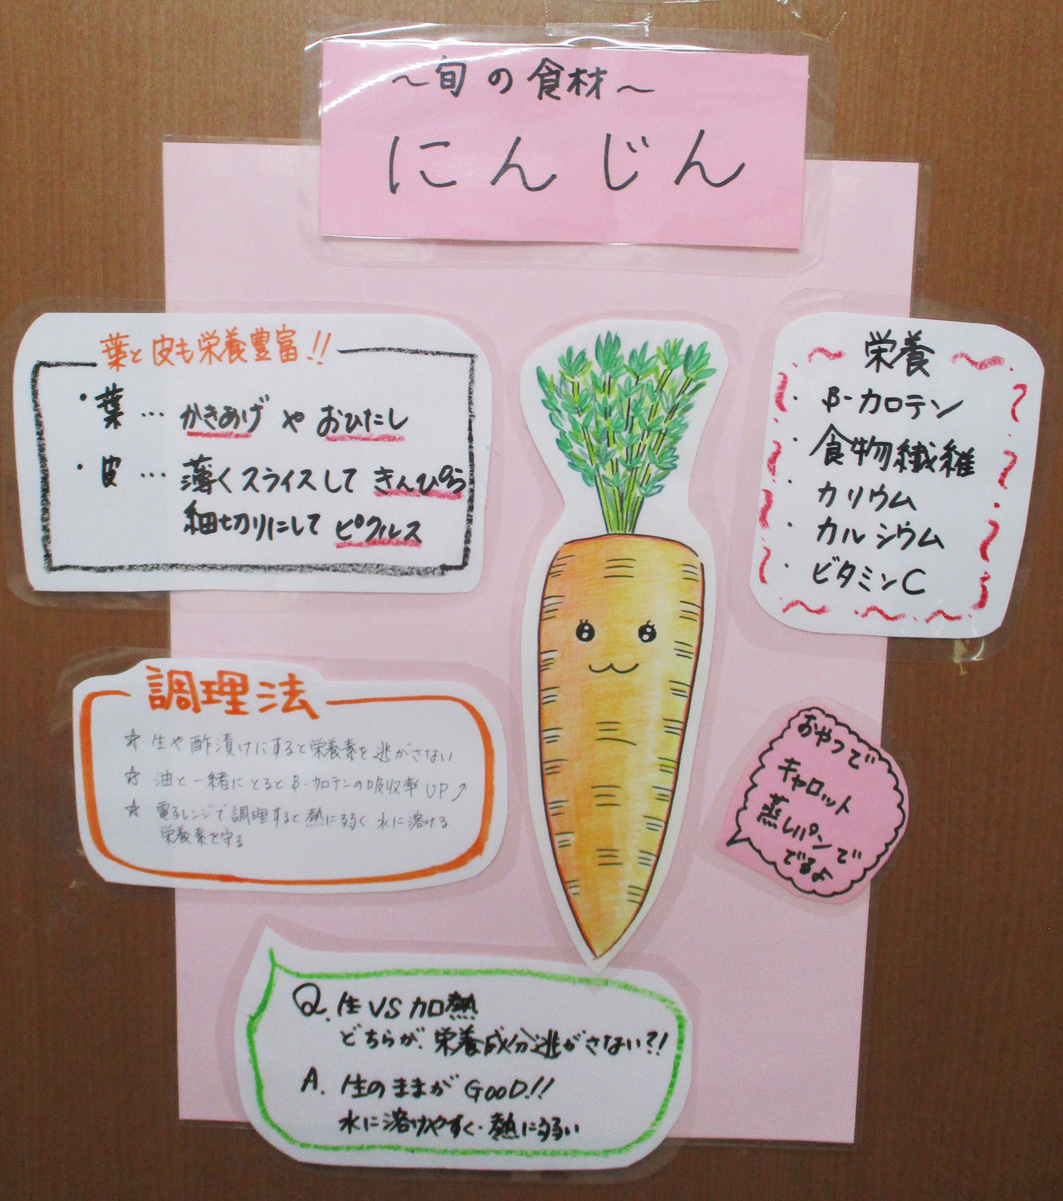 ～旬の食材～
にんじん
葉と皮も栄養豊富!!
・葉…かきあげやおひたし
・皮…薄くスライスしてきんぴら
細切りにしてピクルス
～栄養～
・β-カロテン
・食物繊維
・カリウム
・カルシウム
・ビタミンC
調理法
☆生や酢漬けにすると栄養素を逃がさない
☆油と一緒にとるとβ-カロテンの吸収率UP↗
☆電子レンジで調理すると熱に弱く水に溶ける
栄養素を守る
おやつで
キャロット
蒸しパンで
でるよ
Q.生VS加熱
どちらが、栄養成分逃がさない?!
A.生のままがGOOD!!
水に溶けやすく・熱に弱い